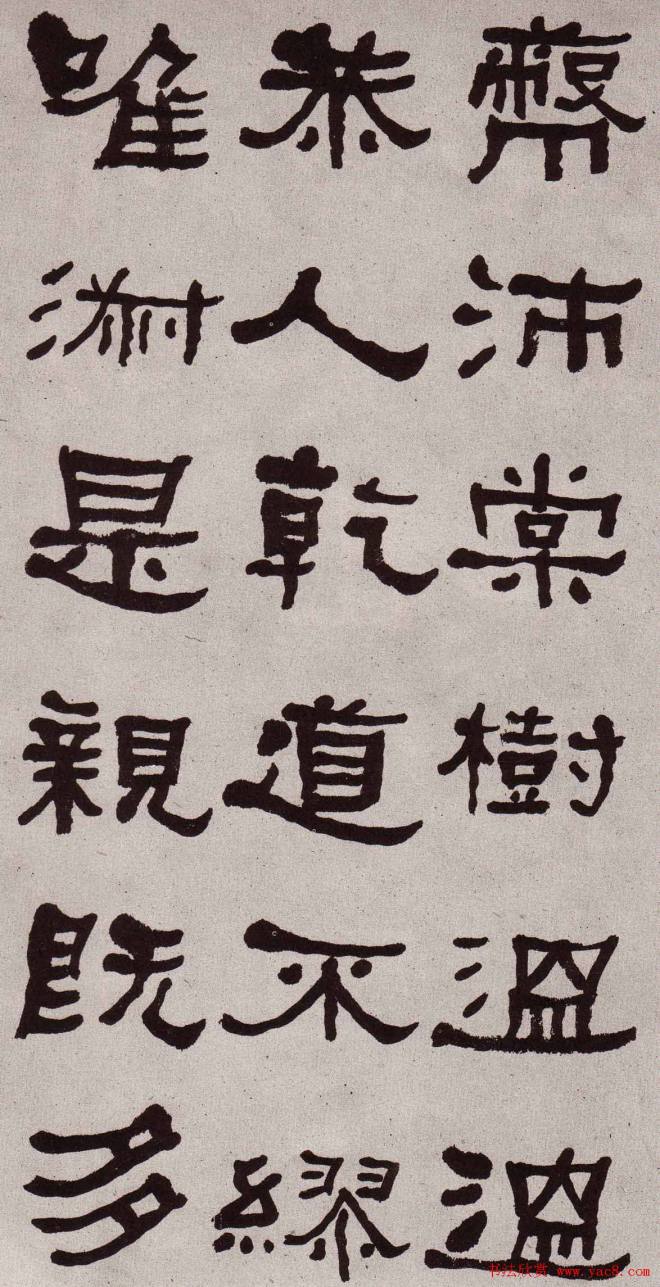 弊沛棠樹溫溫
恭人乾道不繆
唯淑是親既多
书法欣赏 www.yac8.com